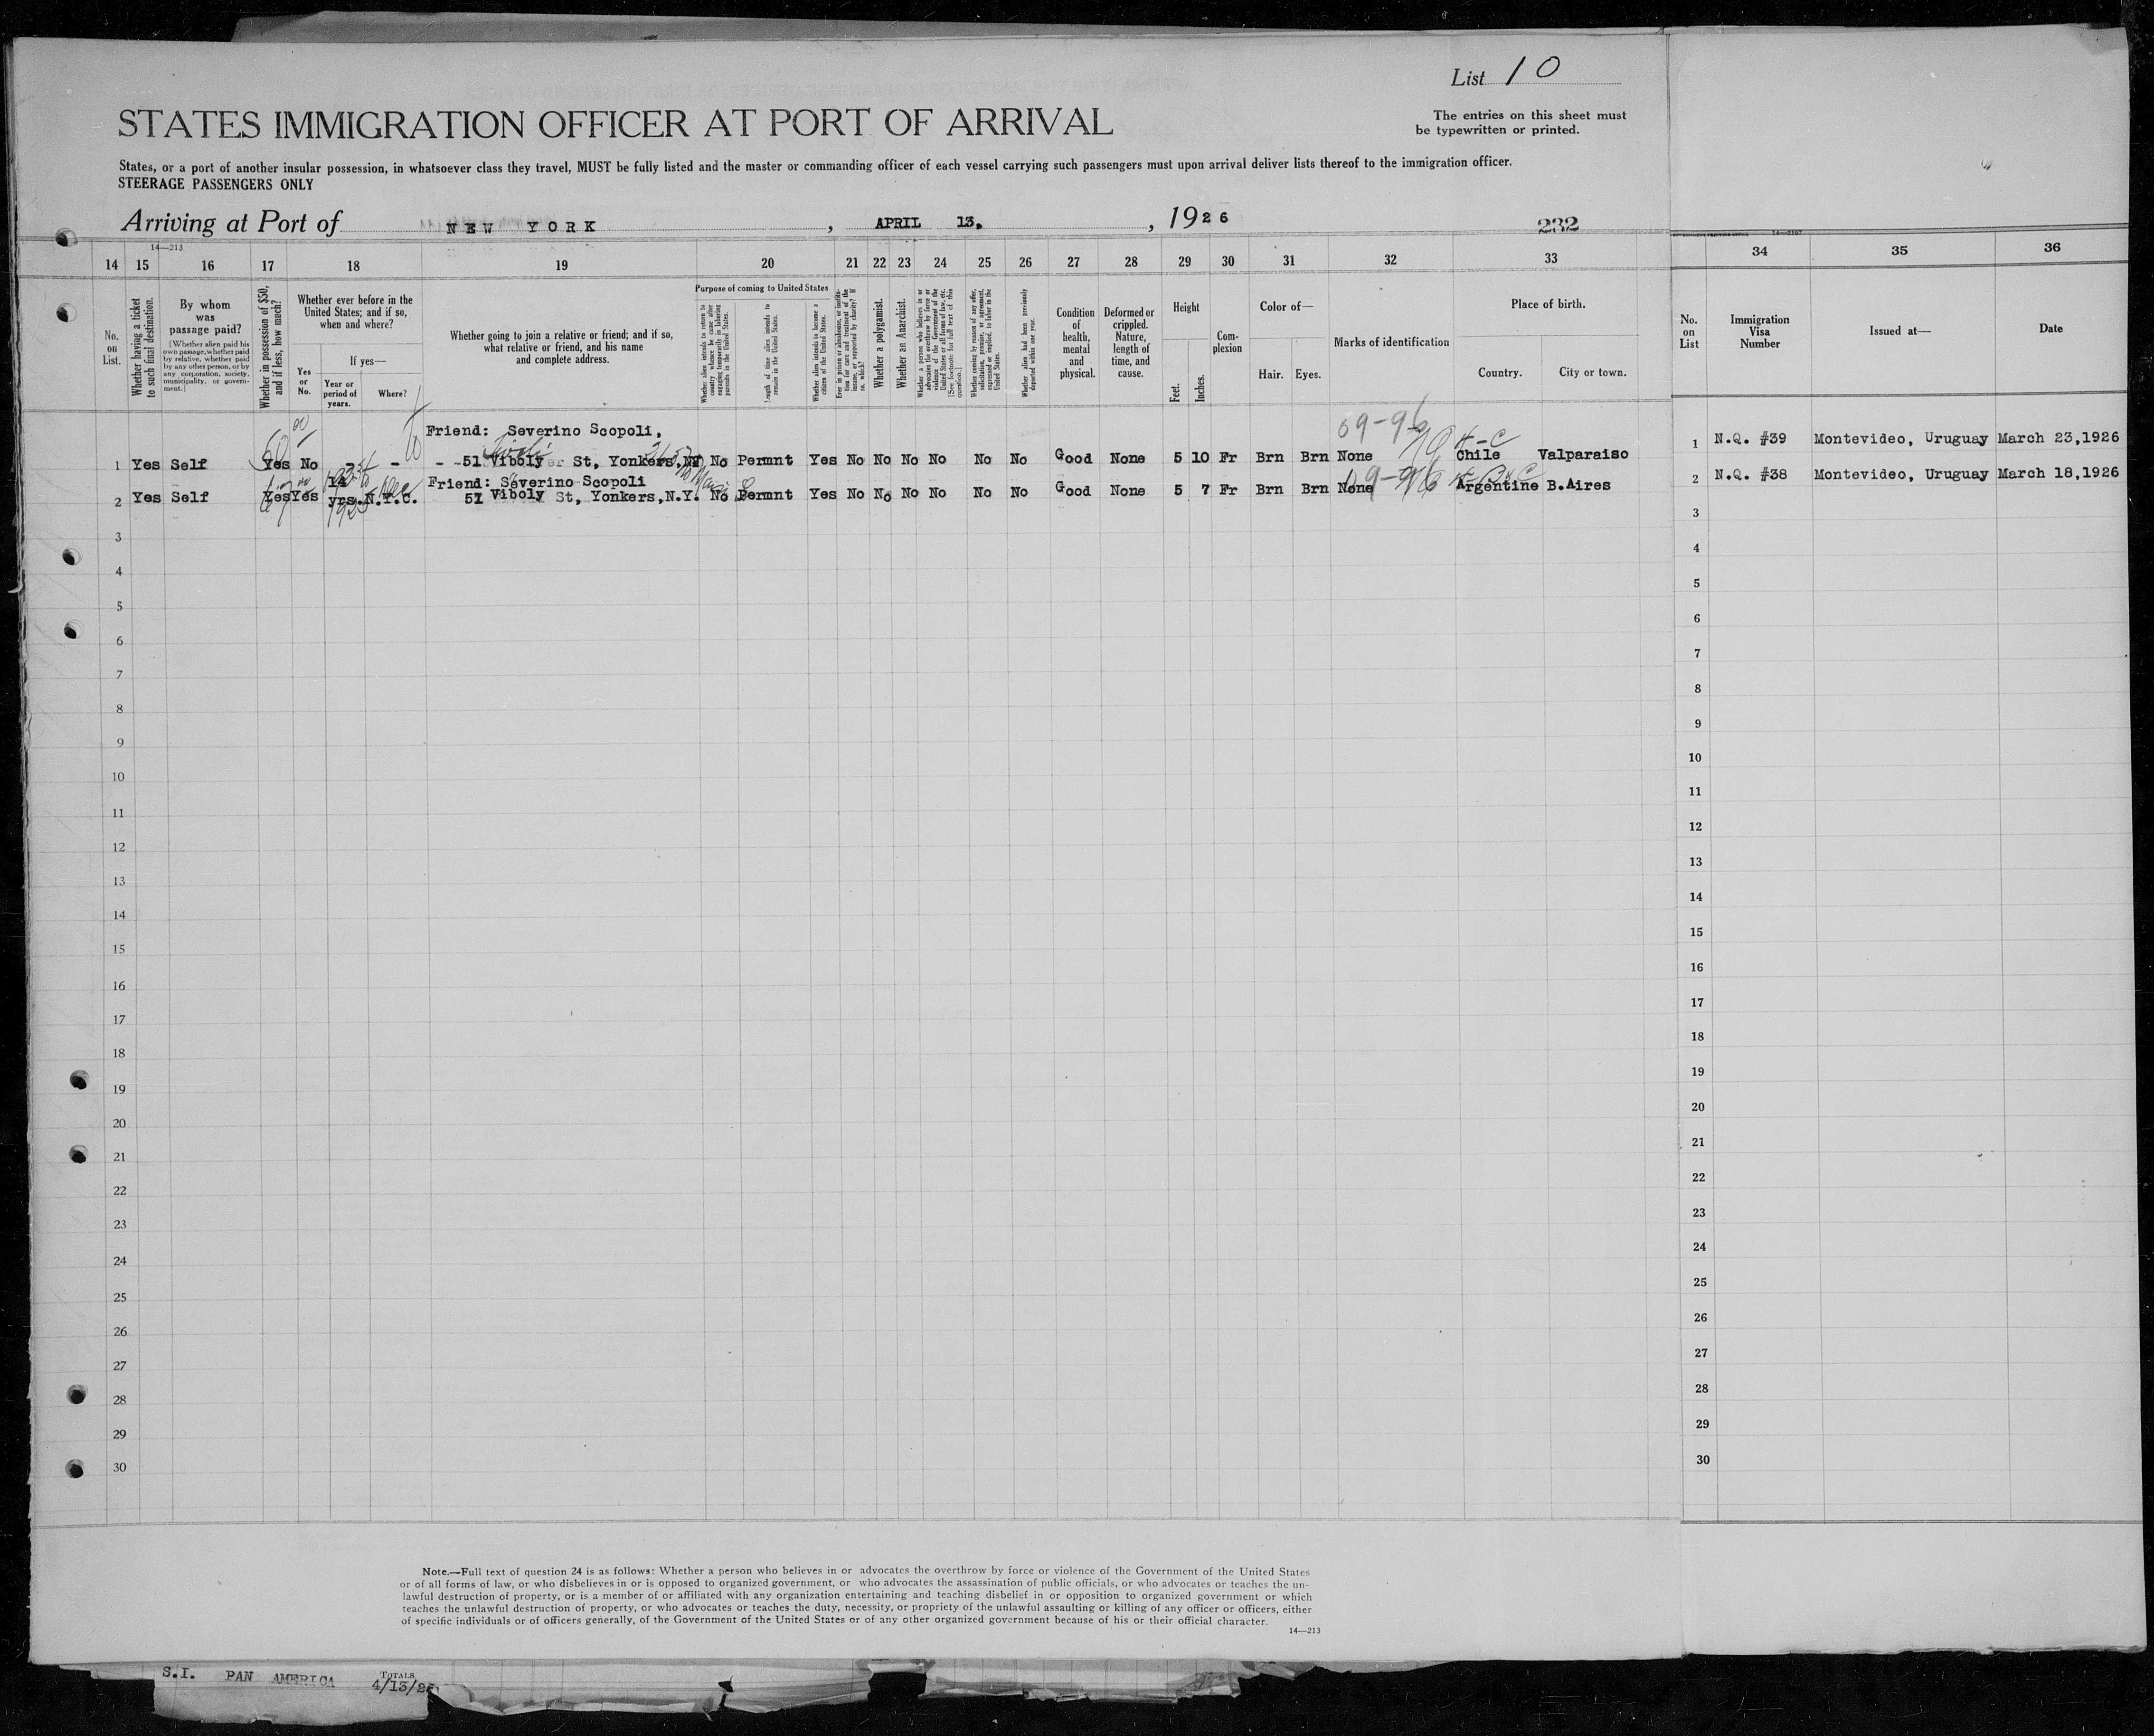 List 10
The entries on this sheet must
be typewritten or printed.
STATES IMMIGRATION OFFICER AT PORT OF ARRIVAL
States, or a port of another insular possession, in whatsoever class they travel, MUST be fully listed and the master or commanding officer of each vessel carrying such passengers must upon arrival deliver lists thereof to the immigration officer.
STEERAGE PASSENGERS ONLY
Arriving at Port of NEW YORK, APRIL 13, 1926
232
14—213
14 15 16 17 18 19 20 21 22 23 24 25 26 27 28 29 30 31 32 33 34 35 36
No. on List.
Whether having a ticket to such final destination.
By whom was passage paid?
[Whether alien paid his own passage, whether paid by relative, whether paid by any other person, or by any corporation, society, municipality, or government.]
Whether in possession of $50, and if less, how much?
Whether ever before in the United States; and if so, when and where?
Yes or No.
If yes—
Year or period of years.
Where?
Whether going to join a relative or friend; and if so, what relative or friend, and his name and complete address.
Purpose of coming to United States
Whether alien intends to return to country whence he came after engaging temporarily in laboring pursuits in the United States.
Length of time alien intends to remain in the United States.
Whether alien intends to become a citizen of the United States.
Ever in prison or almshouse, or institution for care and treatment of the insane, or supported by charity? If so, which?
Whether a polygamist.
Whether an Anarchist.
Whether a person who believes in or advocates the overthrow by force or violence of the Government of the United States or all forms of law, etc. [See footnote for full text of this question.]
Whether coming by reason of any offer, solicitation, promise, or agreement, expressed or implied, to labor in the United States.
Whether alien had been previously deported within one year.
Condition of health, mental and physical.
Deformed or crippled. Nature, length of time, and cause.
Height
Feet.
Inches.
Complexion
Color of—
Hair.
Eyes.
Marks of identification
Place of birth.
Country.
City or town.
No. on List
Immigration Visa Number
Issued at—
Date
Friend: Severino Scopoli,
1 Yes Self Yes No - - 51 Viboly St, Yonkers, NY No Permnt Yes No No No No No No Good None 5 10 Fr Brn Brn None Chile Valparaiso
1 N.Q. #39 Montevideo, Uruguay March 23,1926
Friend: Severino Scopoli
2 Yes Self Yes Yes yrs. N.Y.C. 51 Viboly St, Yonkers,N.Y. No Permnt Yes No No No No No No Good None 5 7 Fr Brn Brn None Argentine B.Aires
2 N.Q. #38 Montevideo, Uruguay March 18,1926
3 3
4 4
5 5
6 6
7 7
8 8
9 9
10 10
11 11
12 12
13 13
14 14
15 15
16 16
17 17
18 18
19 19
20 20
21 21
22 22
23 23
24 24
25 25
26 26
27 27
28 28
29 29
30 30
Note.—Full text of question 24 is as follows: Whether a person who believes in or advocates the overthrow by force or violence of the Government of the United States
or of all forms of law, or who disbelieves in or is opposed to organized government, or who advocates the assassination of public officials, or who advocates or teaches the un-
lawful destruction of property, or is a member of or affiliated with any organization entertaining and teaching disbelief in or opposition to organized government or which
teaches the unlawful destruction of property, or who advocates or teaches the duty, necessity, or propriety of the unlawful assaulting or killing of any officer or officers, either
of specific individuals or of officers generally, of the Government of the United States or of any other organized government because of his or their official character.
14—213
S.I. PAN AMERICA TOTALS 4/13/26